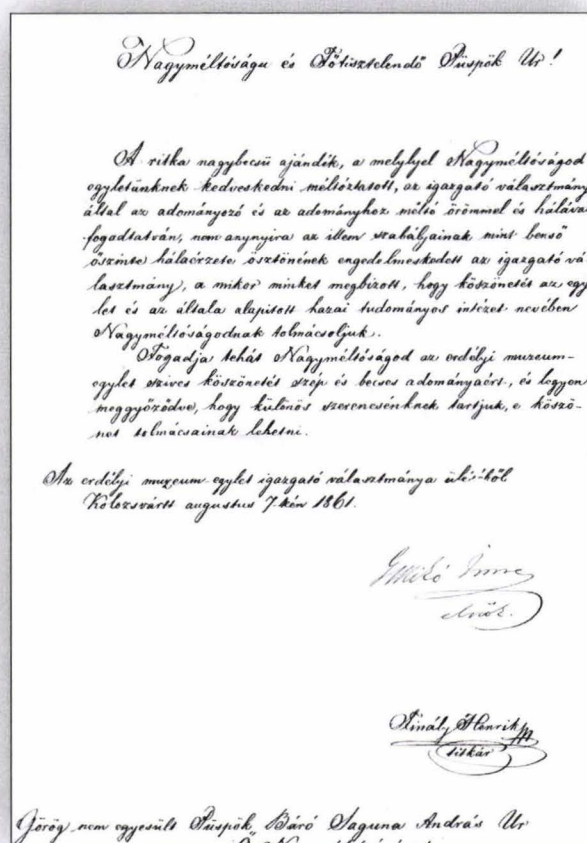 Nagyméltóságu és Főtisztelendő Püspök Ur!
A ritka nagybecsü ajándék, a melylyel Nagyméltóságod
egyletünknek kedveskedni méltóztatott, az igazgató választmány
által az adományozó és az adományhoz méltó örömmel és hálával
fogadtatván, nem anynyira az illem szabályainak mint benső
őszinte hálaérzete ösztönének engedelmeskedett az igazgató vá
lasztmány, a mikor minket megbizott, hogy köszönetét az egy
let és az általa alapitott hazai tudományos intézet nevében
Nagyméltóságodnak tolmácsoljuk.
Fogadja tehát Nagyméltóságod az erdélyi muzeum-
egylet szives köszönetét szép és becses adományaért, és legyen
meggyőződve, hogy különös szerencsénknek tartjuk, e köszö-
net tolmácsainak lehetni.
Az erdélyi muzeum-egylet igazgató választmánya üléséből
Kolozsvártt augustus 7-kén 1861.
Gr Mikó Imre
elnök.
Finály Henrik
titkár
Görög nem egyesült Püspök, Báró Saguna András Ur